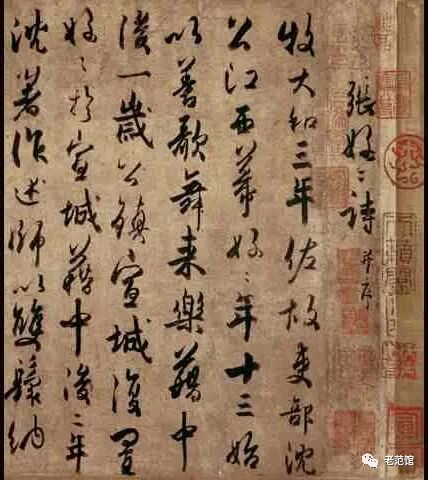 張好好詩 并序
牧大和三年佐故吏部沈
公江西幕好好年十三始
以善歌舞来樂籍中
後一歲公鎮宣城復置
好好於宣城籍中後二年
沈著作述師以雙鬟納
老范馆